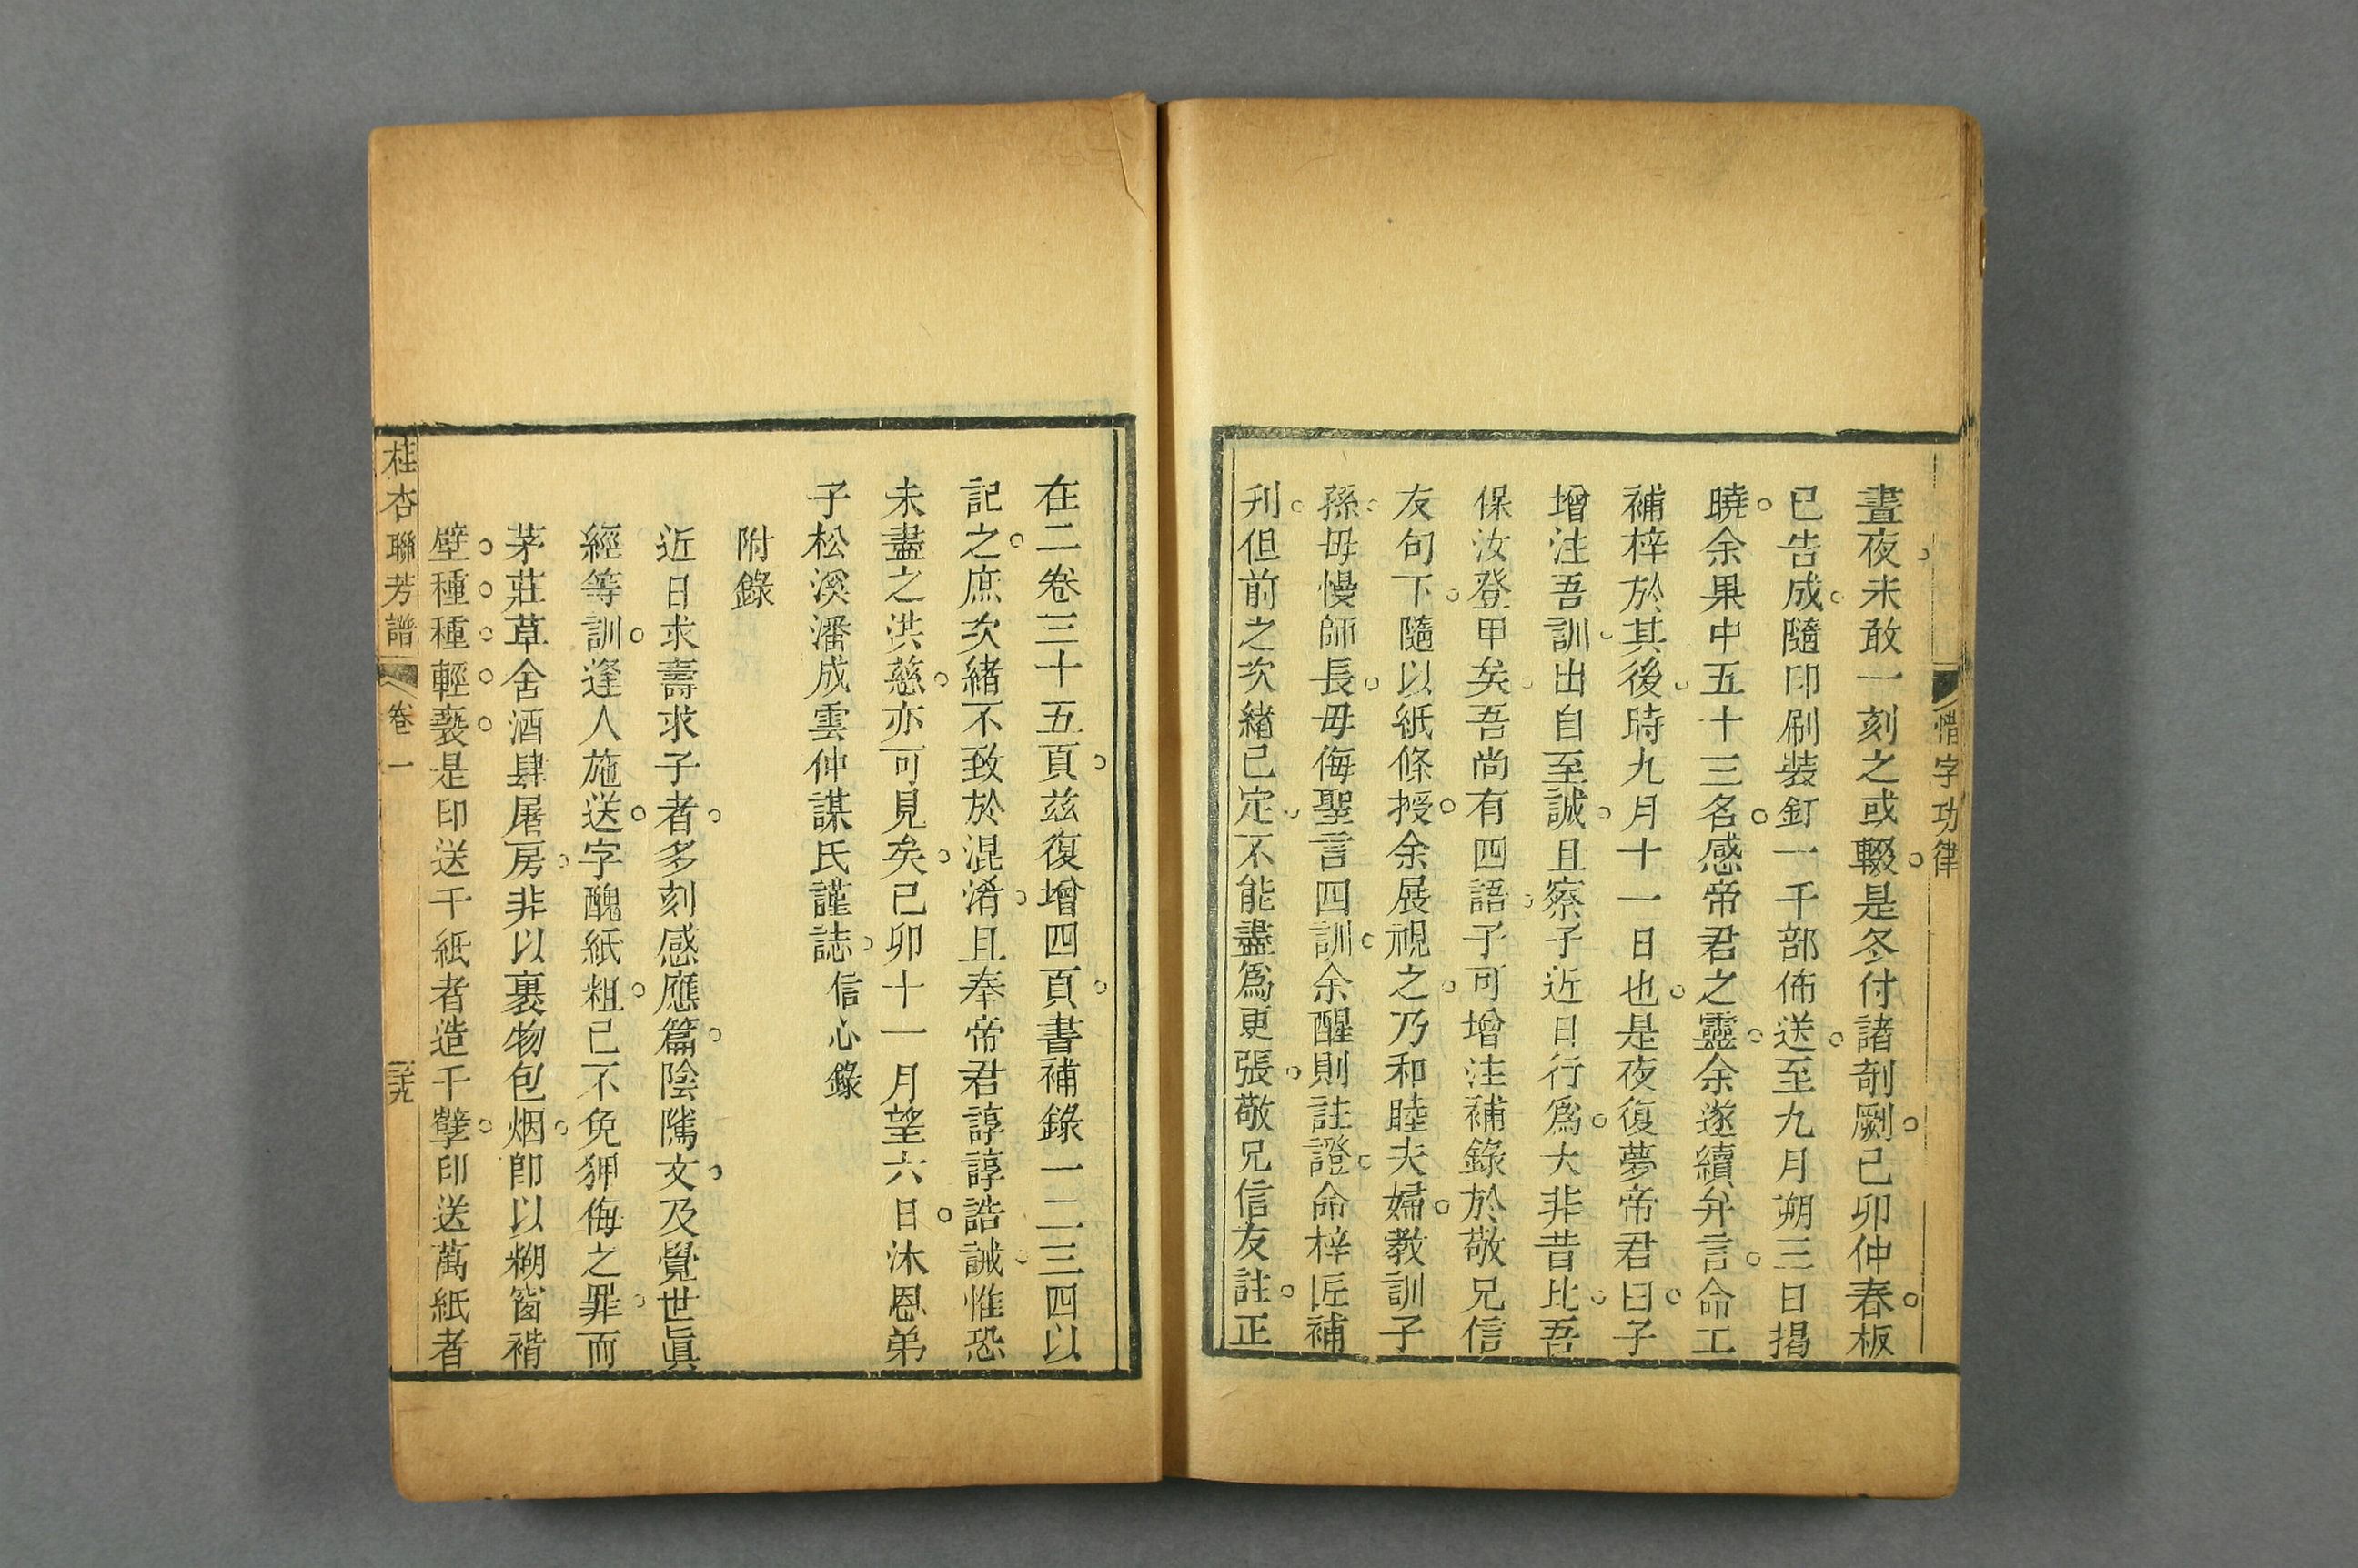 惜字功律
晝夜未敢一刻之或輟。是冬付諸剞劂。己卯仲春。板
已告成。隨印刷裝釘一千部佈送。至九月朔三日揭
曉。余果中五十三名。感帝君之靈。余遂續弁言。命工
補梓於其後。時九月十一日也。是夜復夢帝君曰。子
增注吾訓。出自至誠。且察子近日行爲。大非昔比。吾
保汝登甲矣。吾尚有四語。子可增注補錄於敬兄信
友句下。隨以紙條授。余展視之。乃和睦夫婦。教訓子
孫。毋慢師長。毋侮聖言四訓。余醒則註證。命梓匠補
刋。但前之次緒已定。不能盡爲更張。敬兄信友註。正
在二卷三十五頁。兹復增四頁。書補錄一二三四以
記之。庶次緒不致於混淆。且奉帝君諄諄誥誡。惟恐
未盡之洪慈。亦可見矣。己卯十一月望六日。沐恩弟
子松溪潘成雲仲謀氏謹誌。信心錄
附錄
近日求壽求子者。多刻感應篇。陰隲文。及覺世眞
經等訓。逢人施送。字醜紙粗。已不免狎侮之罪。而
茅莊草舍酒肆屠房。非以裹物包烟。卽以糊窗褙
壁。種。種。輕。褻。是印送千紙者造千孽。印送萬紙者
桂杏聯芳譜
卷一
三十九